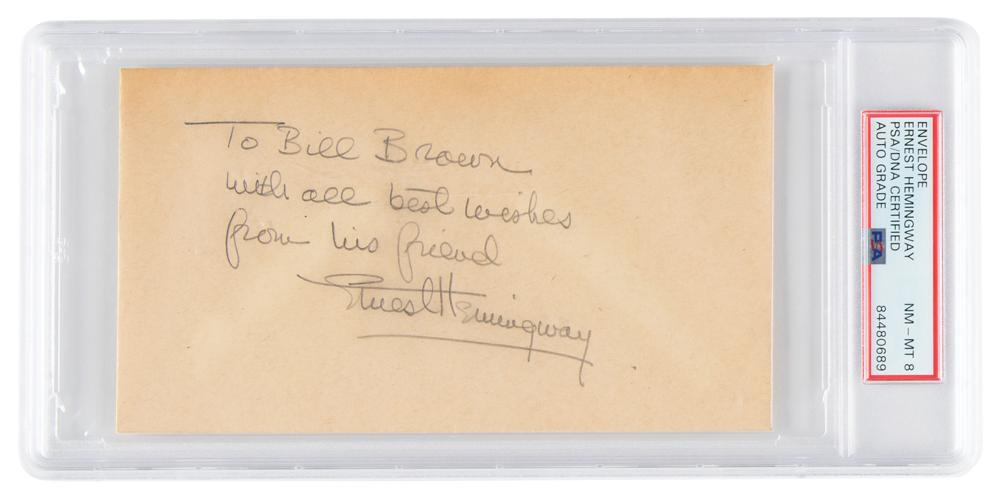 To Bill Brown
with all best wishes
from his friend
Ernest Hemingway
ENVELOPE
ERNEST HEMINGWAY
PSA/DNA CERTIFIED
AUTO GRADE
PSA
NM – MT 8
84480689